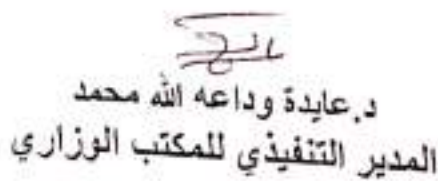 د. عايدة وداعه الله محمد
المدير التنفيذي للمكتب الوزاري